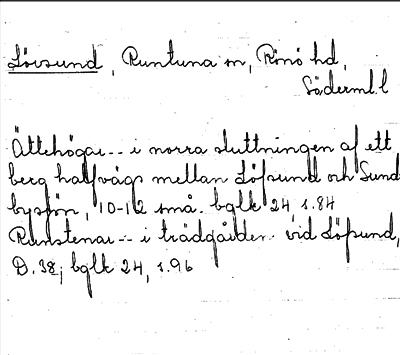 Lövsund, Runtuna sn, Rönö hd,
Söderml. l
Ättehögar -- i norra sluttningen af ett
berg halfvägs mellan Löfsund och Sund
bysjön, 10-12 små. bglk 24 s. 84
Runstenar -- i trädgården vid Löfsund,
D. 38; bglk 24, s. 96